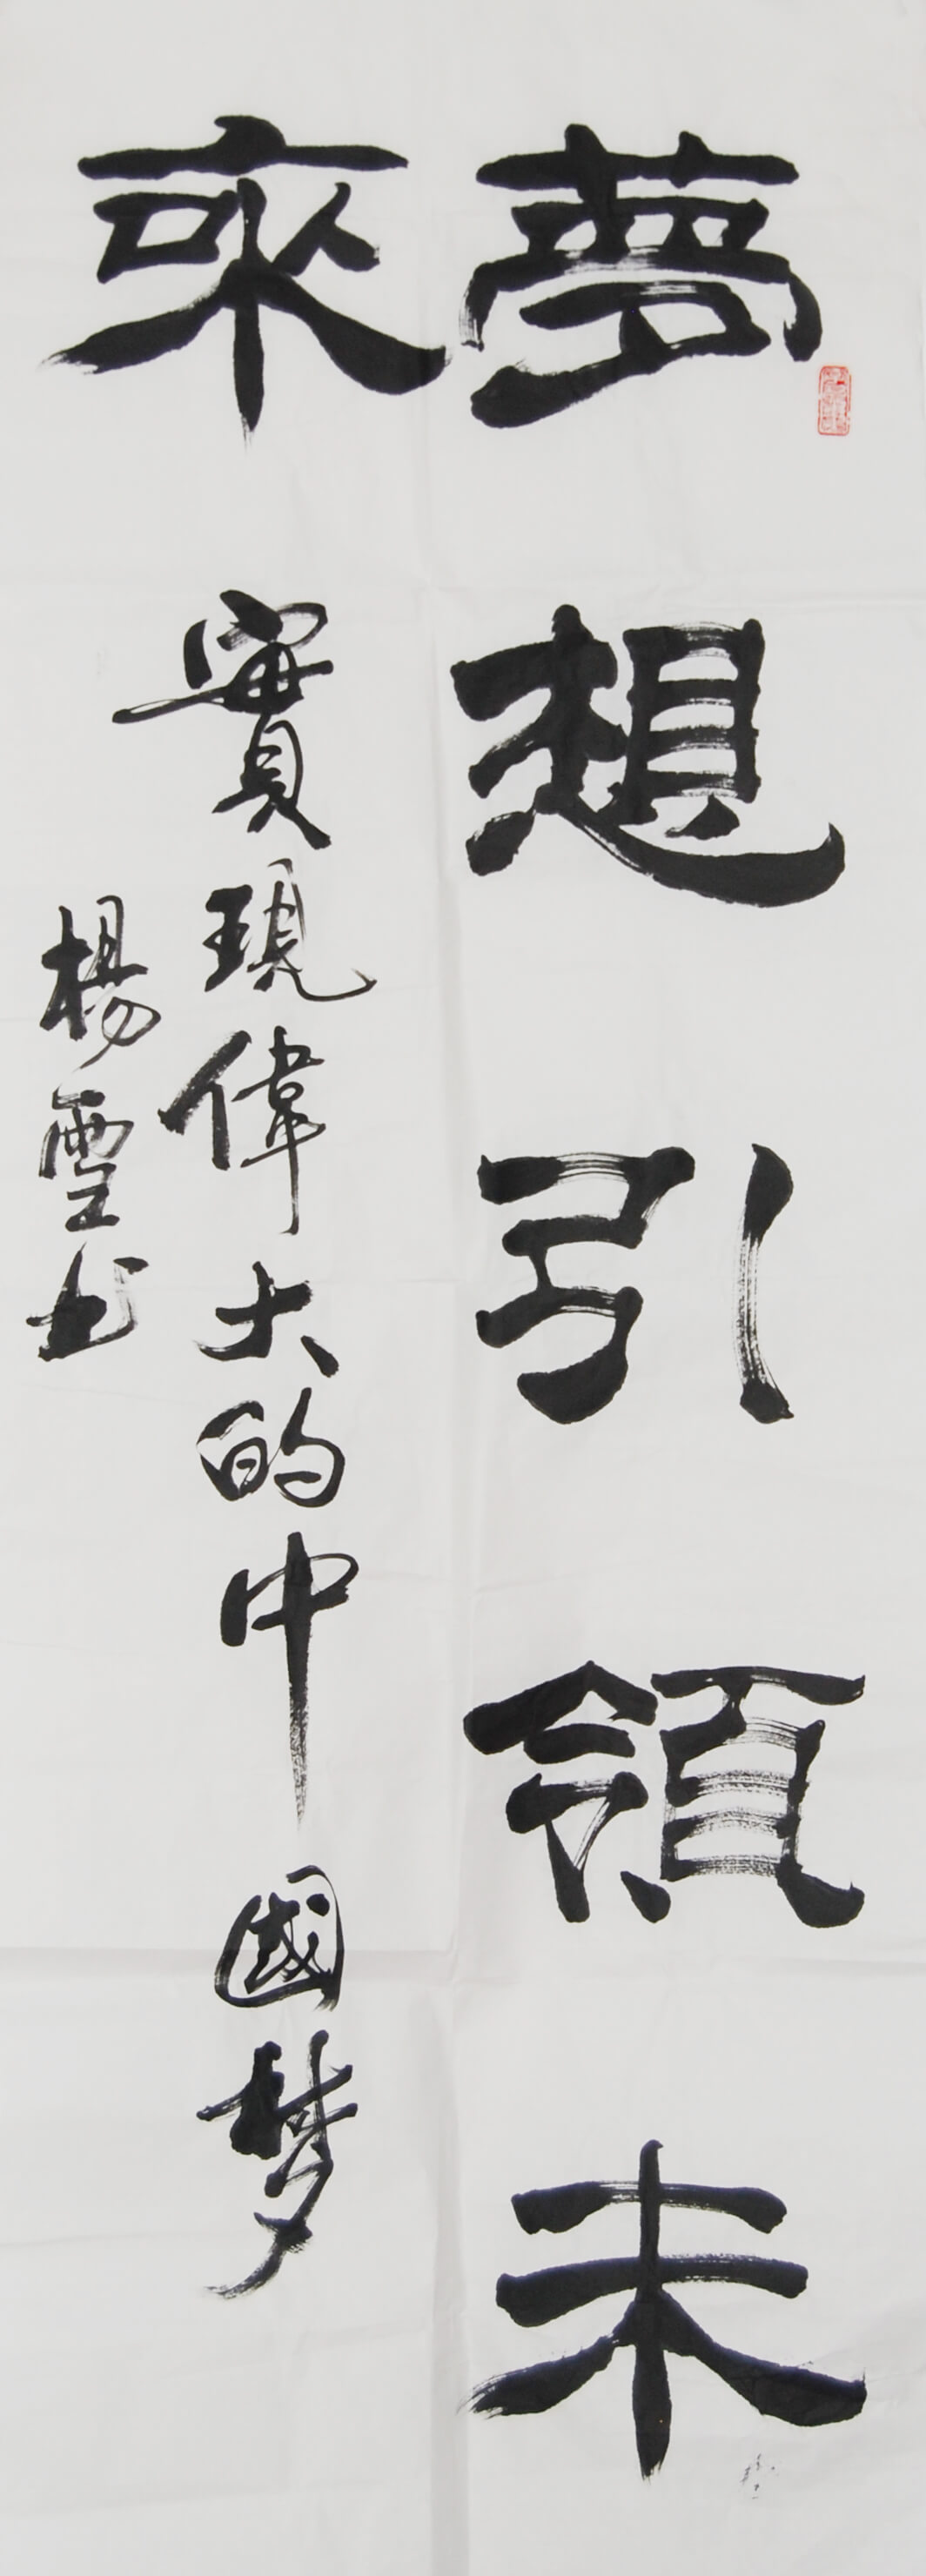 夢想引領未
來
實現偉大的中國梦
楊雪书